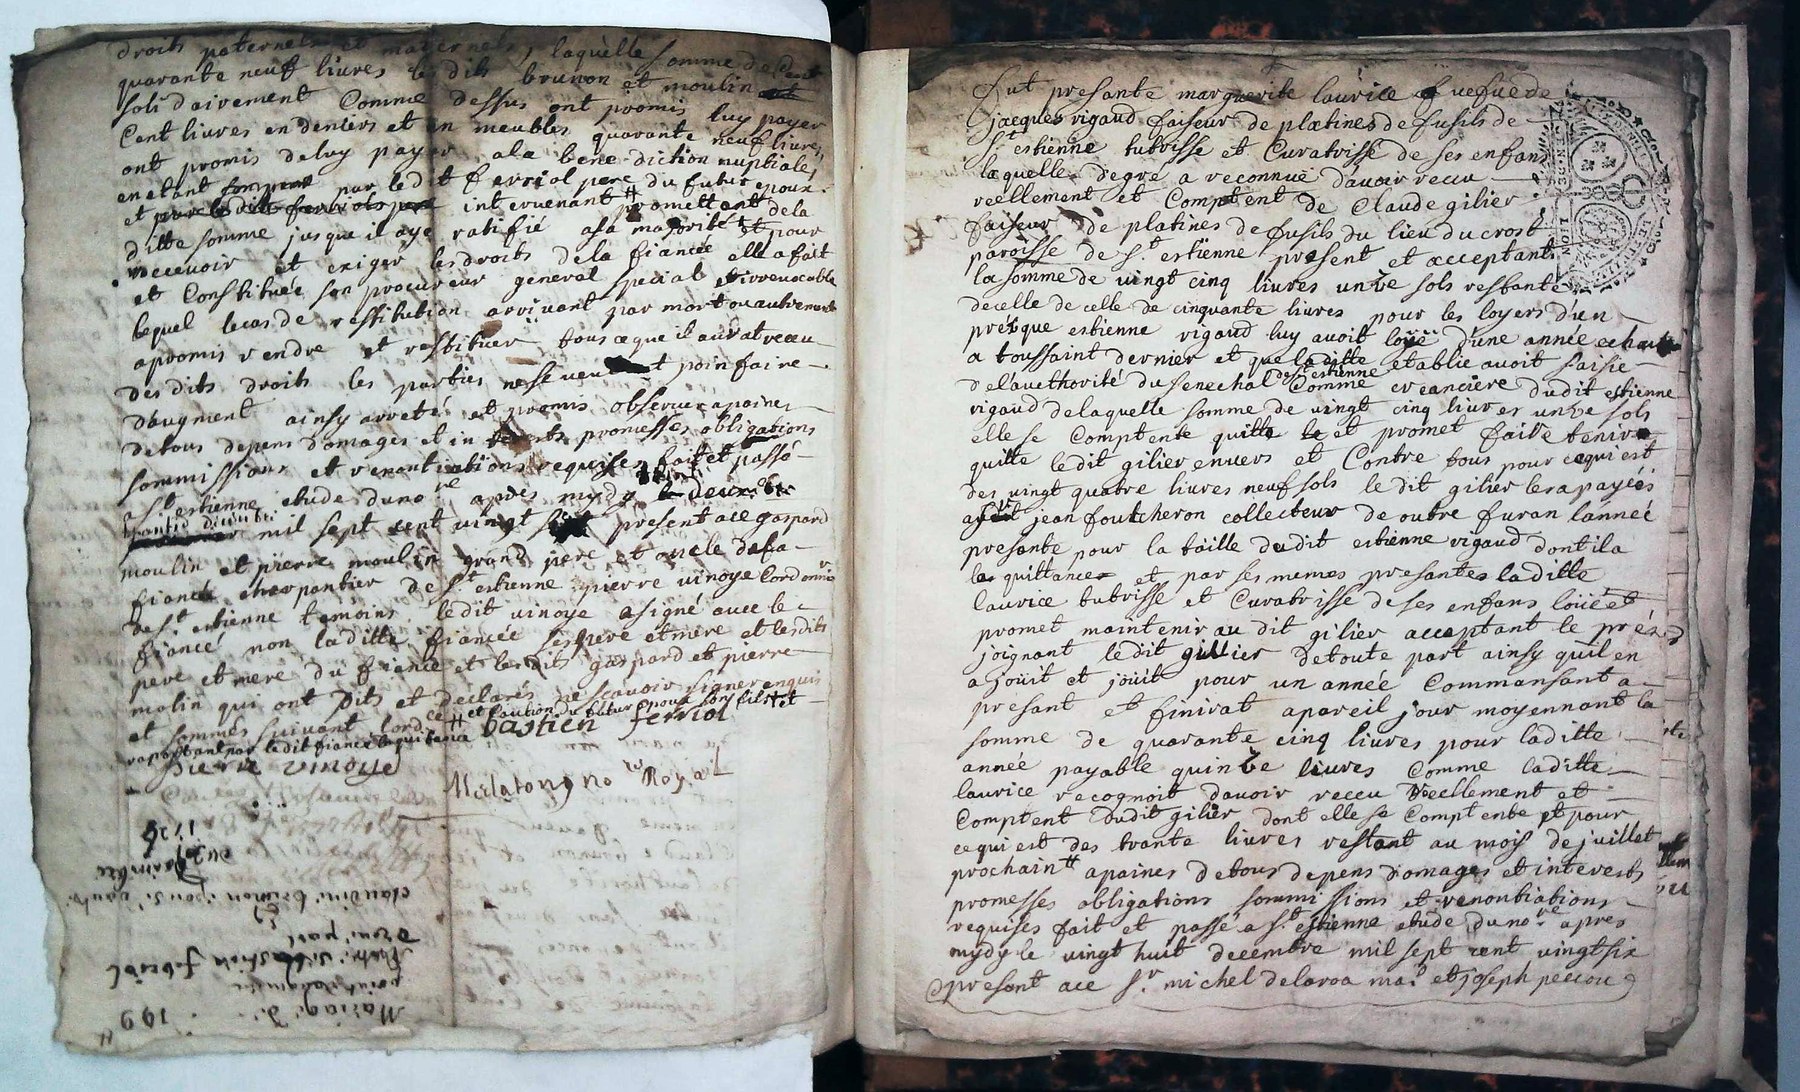 droits paternels et maternels, laquelle somme de Cent
quarante neuf livres lesdits brunon et moulin
solidairement Comme dessus ont promis luy payer
Cent livres en deniers et en meubles quarante neuf livres
ont promis deluy payer ala benediction nuptiale
enetant par ledit ferriol pere du futur epoux
et intervenant promettant dela
ditte somme jusque il aye ratifié asa majorité et pour
recevoir et exiger les droits dela fiancée elle a fait
et Constituée son procureur general special et irrevocable
lequel lecas de restitution arrivant par mort ou autrement
apromis rendre et restituer tous ce que il aurat receu
desdits droits les parties ne se veu t poin faire
daugment ainsy arreté et promis observer apaine
detous depens domages et in promesses obligations
sommissions et renontiations requises fait et passé
a St estienne etude du nore apres mydy
mil sept cent vingt present ace gaspard
moulin et pierre moulin grand pere et oncle dela
fiancée charpantier de St estienne pierre vinoye Cordonnier
de St estienne temoins ledit vinoye a signé avec le
fiancé non laditte fiancée ses pere et mere et lesdits
pere et mere du fiancé et lesdits gaspard et pierre
molin qui ont dits et declarés ne scavoir signer enquis
et sommés suivant lordce # et Caution du futur epoux son fils et
raportant par ledit fiancé la quittance bastien ferriol
pierre vinoye
no re Royal
Mariage de
199
Sebastien feriol
D'une part
&
claudine brunon
1726
fut presante marguerite laurice vefue de
jacques rigaud faiseur de platines de fusils de
St estienne tutrisse et Curatrisse de ses enfans
laquelle degre a reconnuë davoir receu
reellement et Comptent de Claude gilier
faiseur de platines de fusils du lieu du crost
paroisse de St estienne present et acceptant
la somme de vingt cinq livres unze sols restante
decelle de celle de cinquante livres pour les loyers d'un
pré que estienne rigaud luy avoit loüé d'une année echeute
a toussaint dernier et que laditte etablie avoit saisie
de lauthorité du senechal de St estienne Comme creanciere dudit estienne
rigaud delaquelle somme de vingt cinq livres unze sols
elle se Comptente quitte et promet faire tenir
quitte ledit gilier envers et Contre tous pour cequi est
des vingt quatre livres neuf sols le dit gilier les a payées
jean foutcheron collecteur de outre furan lannée
presante pour la taille dudit estienne rigaud dont il a
la quittance et par ses memes presantes laditte
laurice tutrisse et Curatrisse de ses enfans loüé et
promet maintenir au dit gilier acceptant le prés
joignant ledit gillier detoute part ainsy quil en
a joüit et joüit pour un année Commansant a
présant et finirat apareil jour moyennant la
somme de quarante cinq livres pour laditte
année payable quinze livres Comme laditte
laurice recognoit davoir receu reellement et
Comptent dudit gilier dont elle se Comptente et pour
cequi est des trante livres restant au mois de juillet
prochain apaines detous depens domages et interests
promesses obligations sommissions et renontiations
requises fait et passé a St estienne etude du nore apres
mydy le vingt huit decembre mil sept cent vingt six
present ace Sr michel delaroa mad et joseph